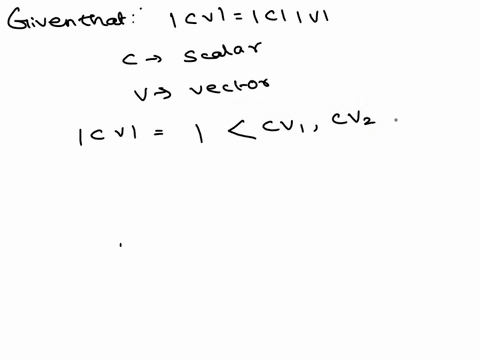 Given that: |cv| = |c| |v|
c → scalar
v → vector
|cv| = | < cv₁, cv₂